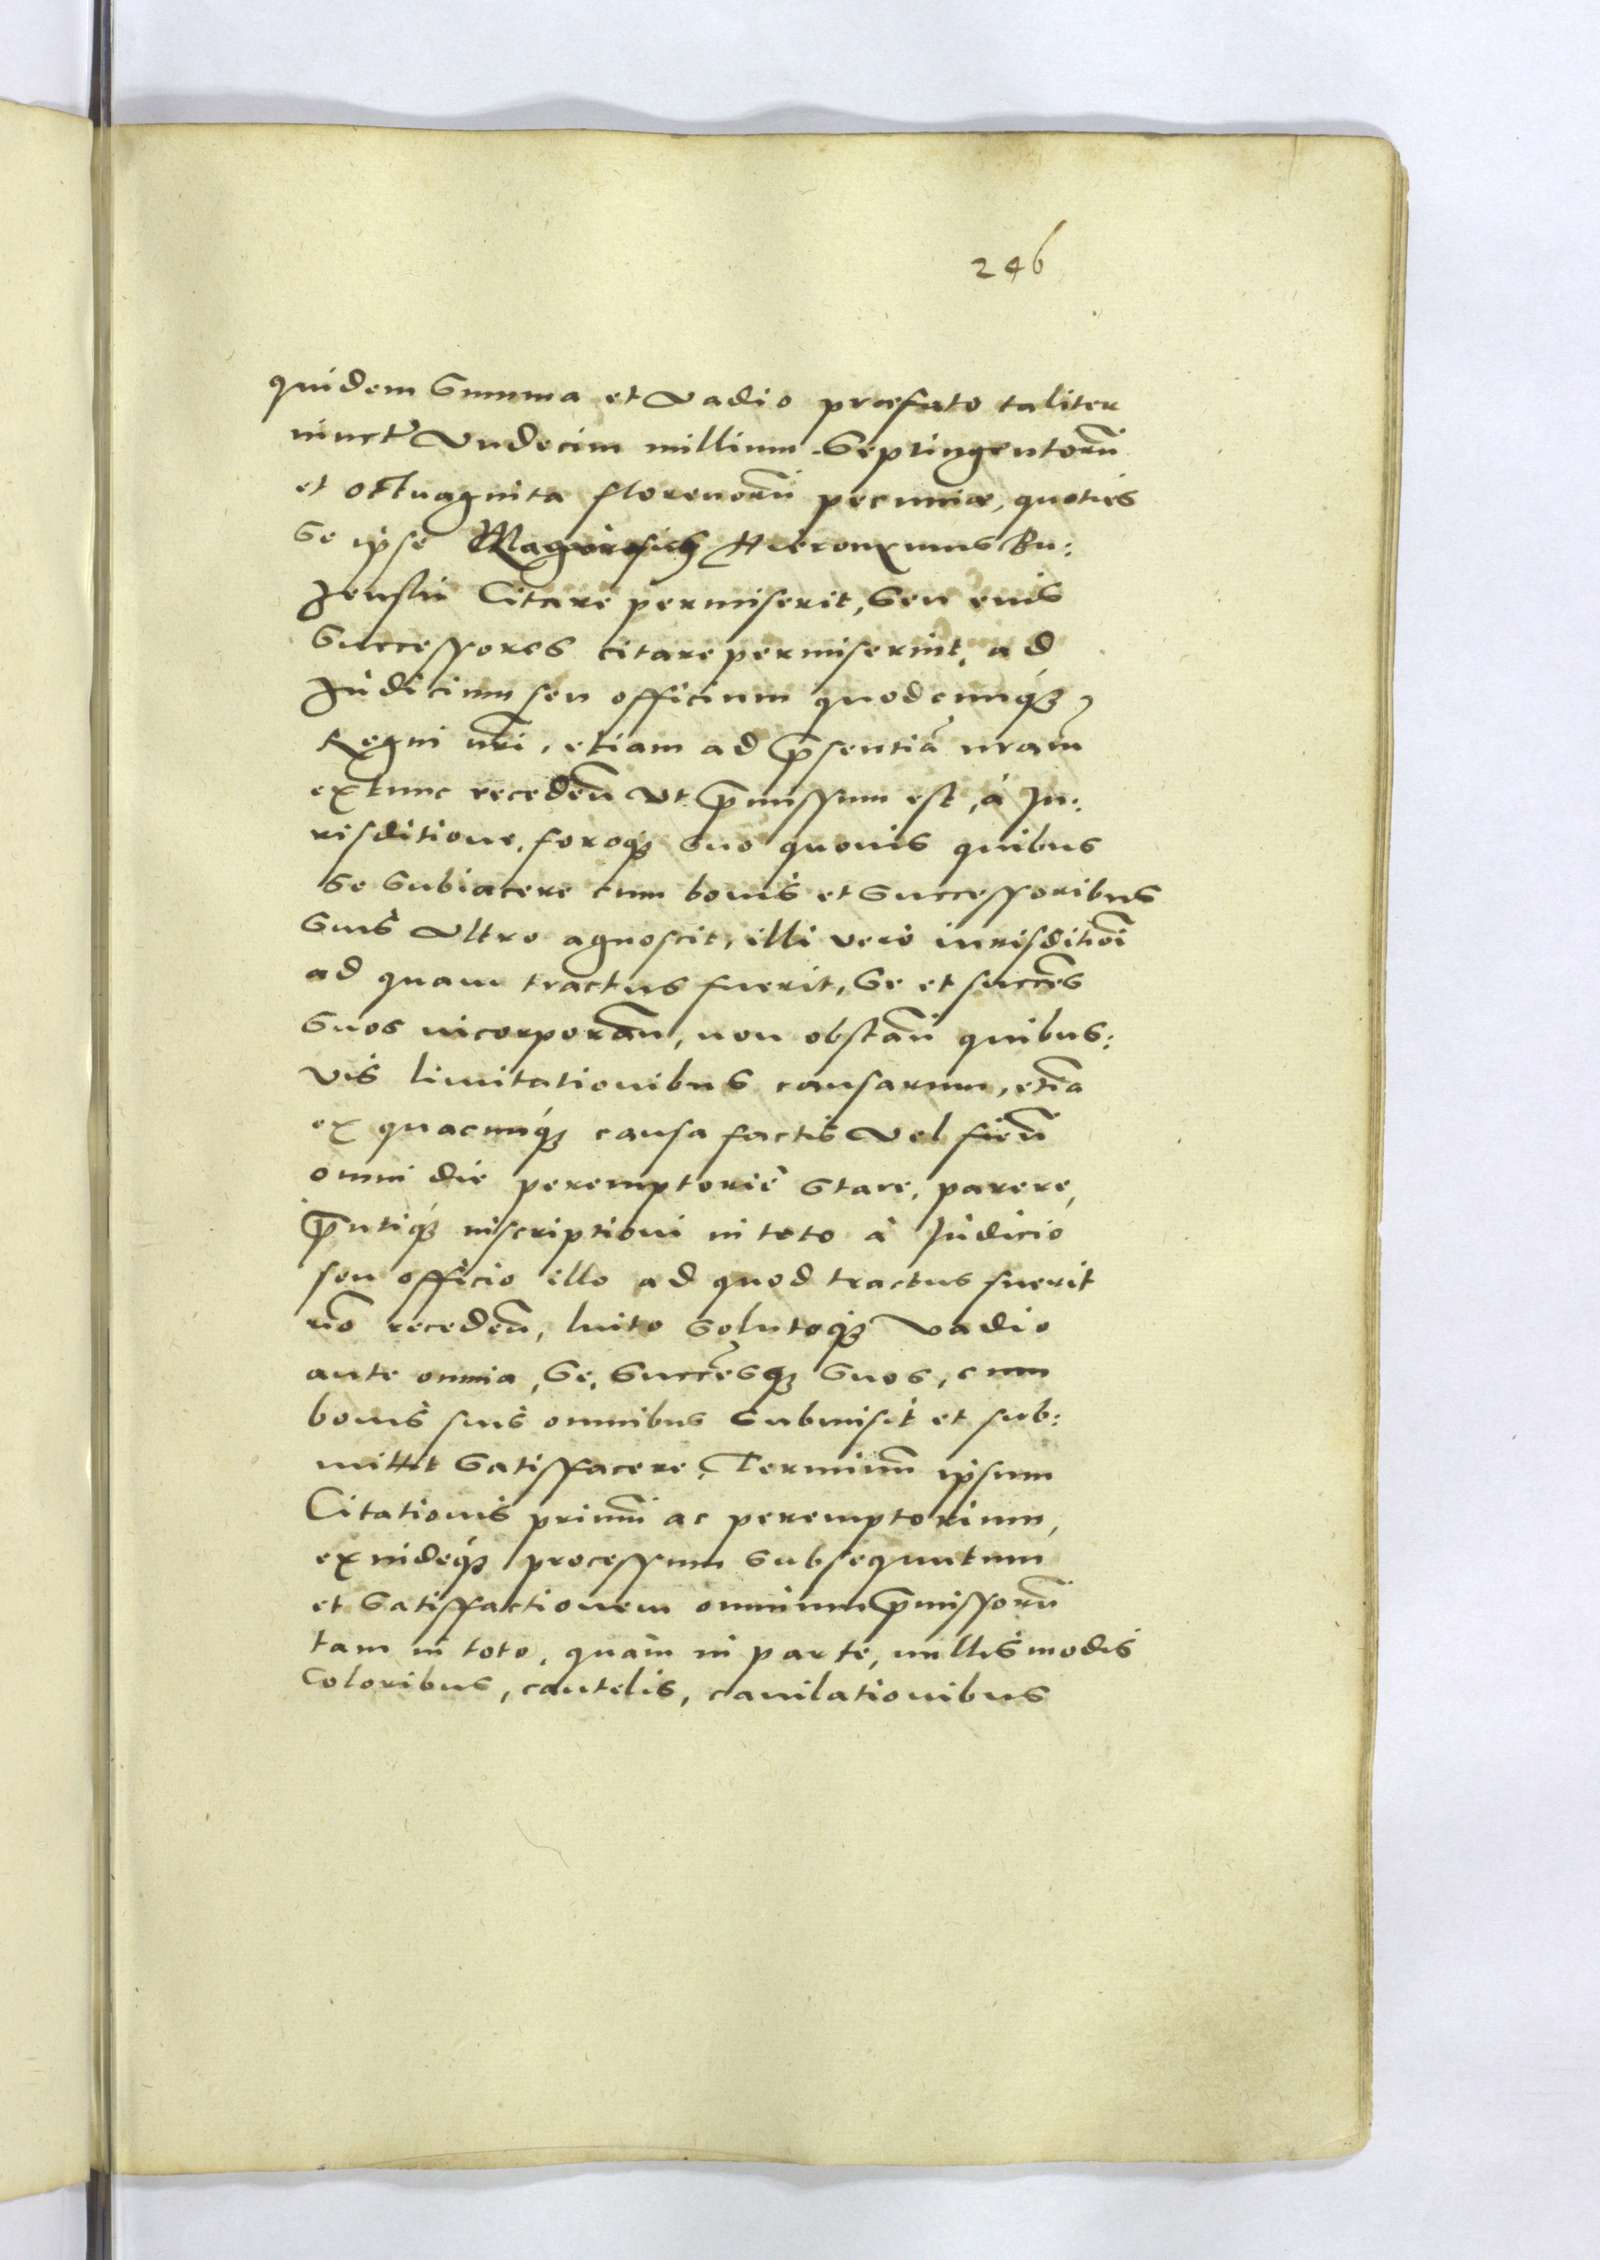 246
quidem Summa et Vadio præfato taliter
iuncter̃ Vndecim millium Septingentorũ
et octuaginta florenorũ pecuniæ, quoties
Se ipse Hieronymus Bu:
zenskii Citare permiserit, Seu eius
Successores citare permiserint, ad
Judicium seu officium quodcunq́₃
Regni nr̃i, etiam ad p̃sentiã nram̃
extunc recedeñ Vt p̃missum est, à Ju:
risditione, foroq₃ suo quouis quibus
Se Subiacere cum bonis et Successoribus
Suis Vltro agnoscit, illi vero iurisditioñi
ad quam tractus fuerit, Se et succes̃
Suos incorporañ, non obstañ quibus:
Vis limitationibus causarum, etĩa
ex quacunq́₃ causa factis Vel fieñ
omni die peremptorie Stare, parere,
p̃ntiq́₃ inscriptioni in toto à Judicio
seu officio illo ad quod tractus fuerit
nõ recedeñ, luito Solutoq₃ Vadio
ante omnia, Se, Succes̃q₃ Suos, cum
bonis suis omnibus Submisit et sub:
mittit Satisfacere, Terminum̃ ipsum
Citationis primum̃ ac peremptorium,
exindeq́₃ processum Subsequutum
et Satisfactionem omnium p̃missorũ
tam in toto, quàm in parte, nullis modis
Coloribus, cautelis, cauilationibus